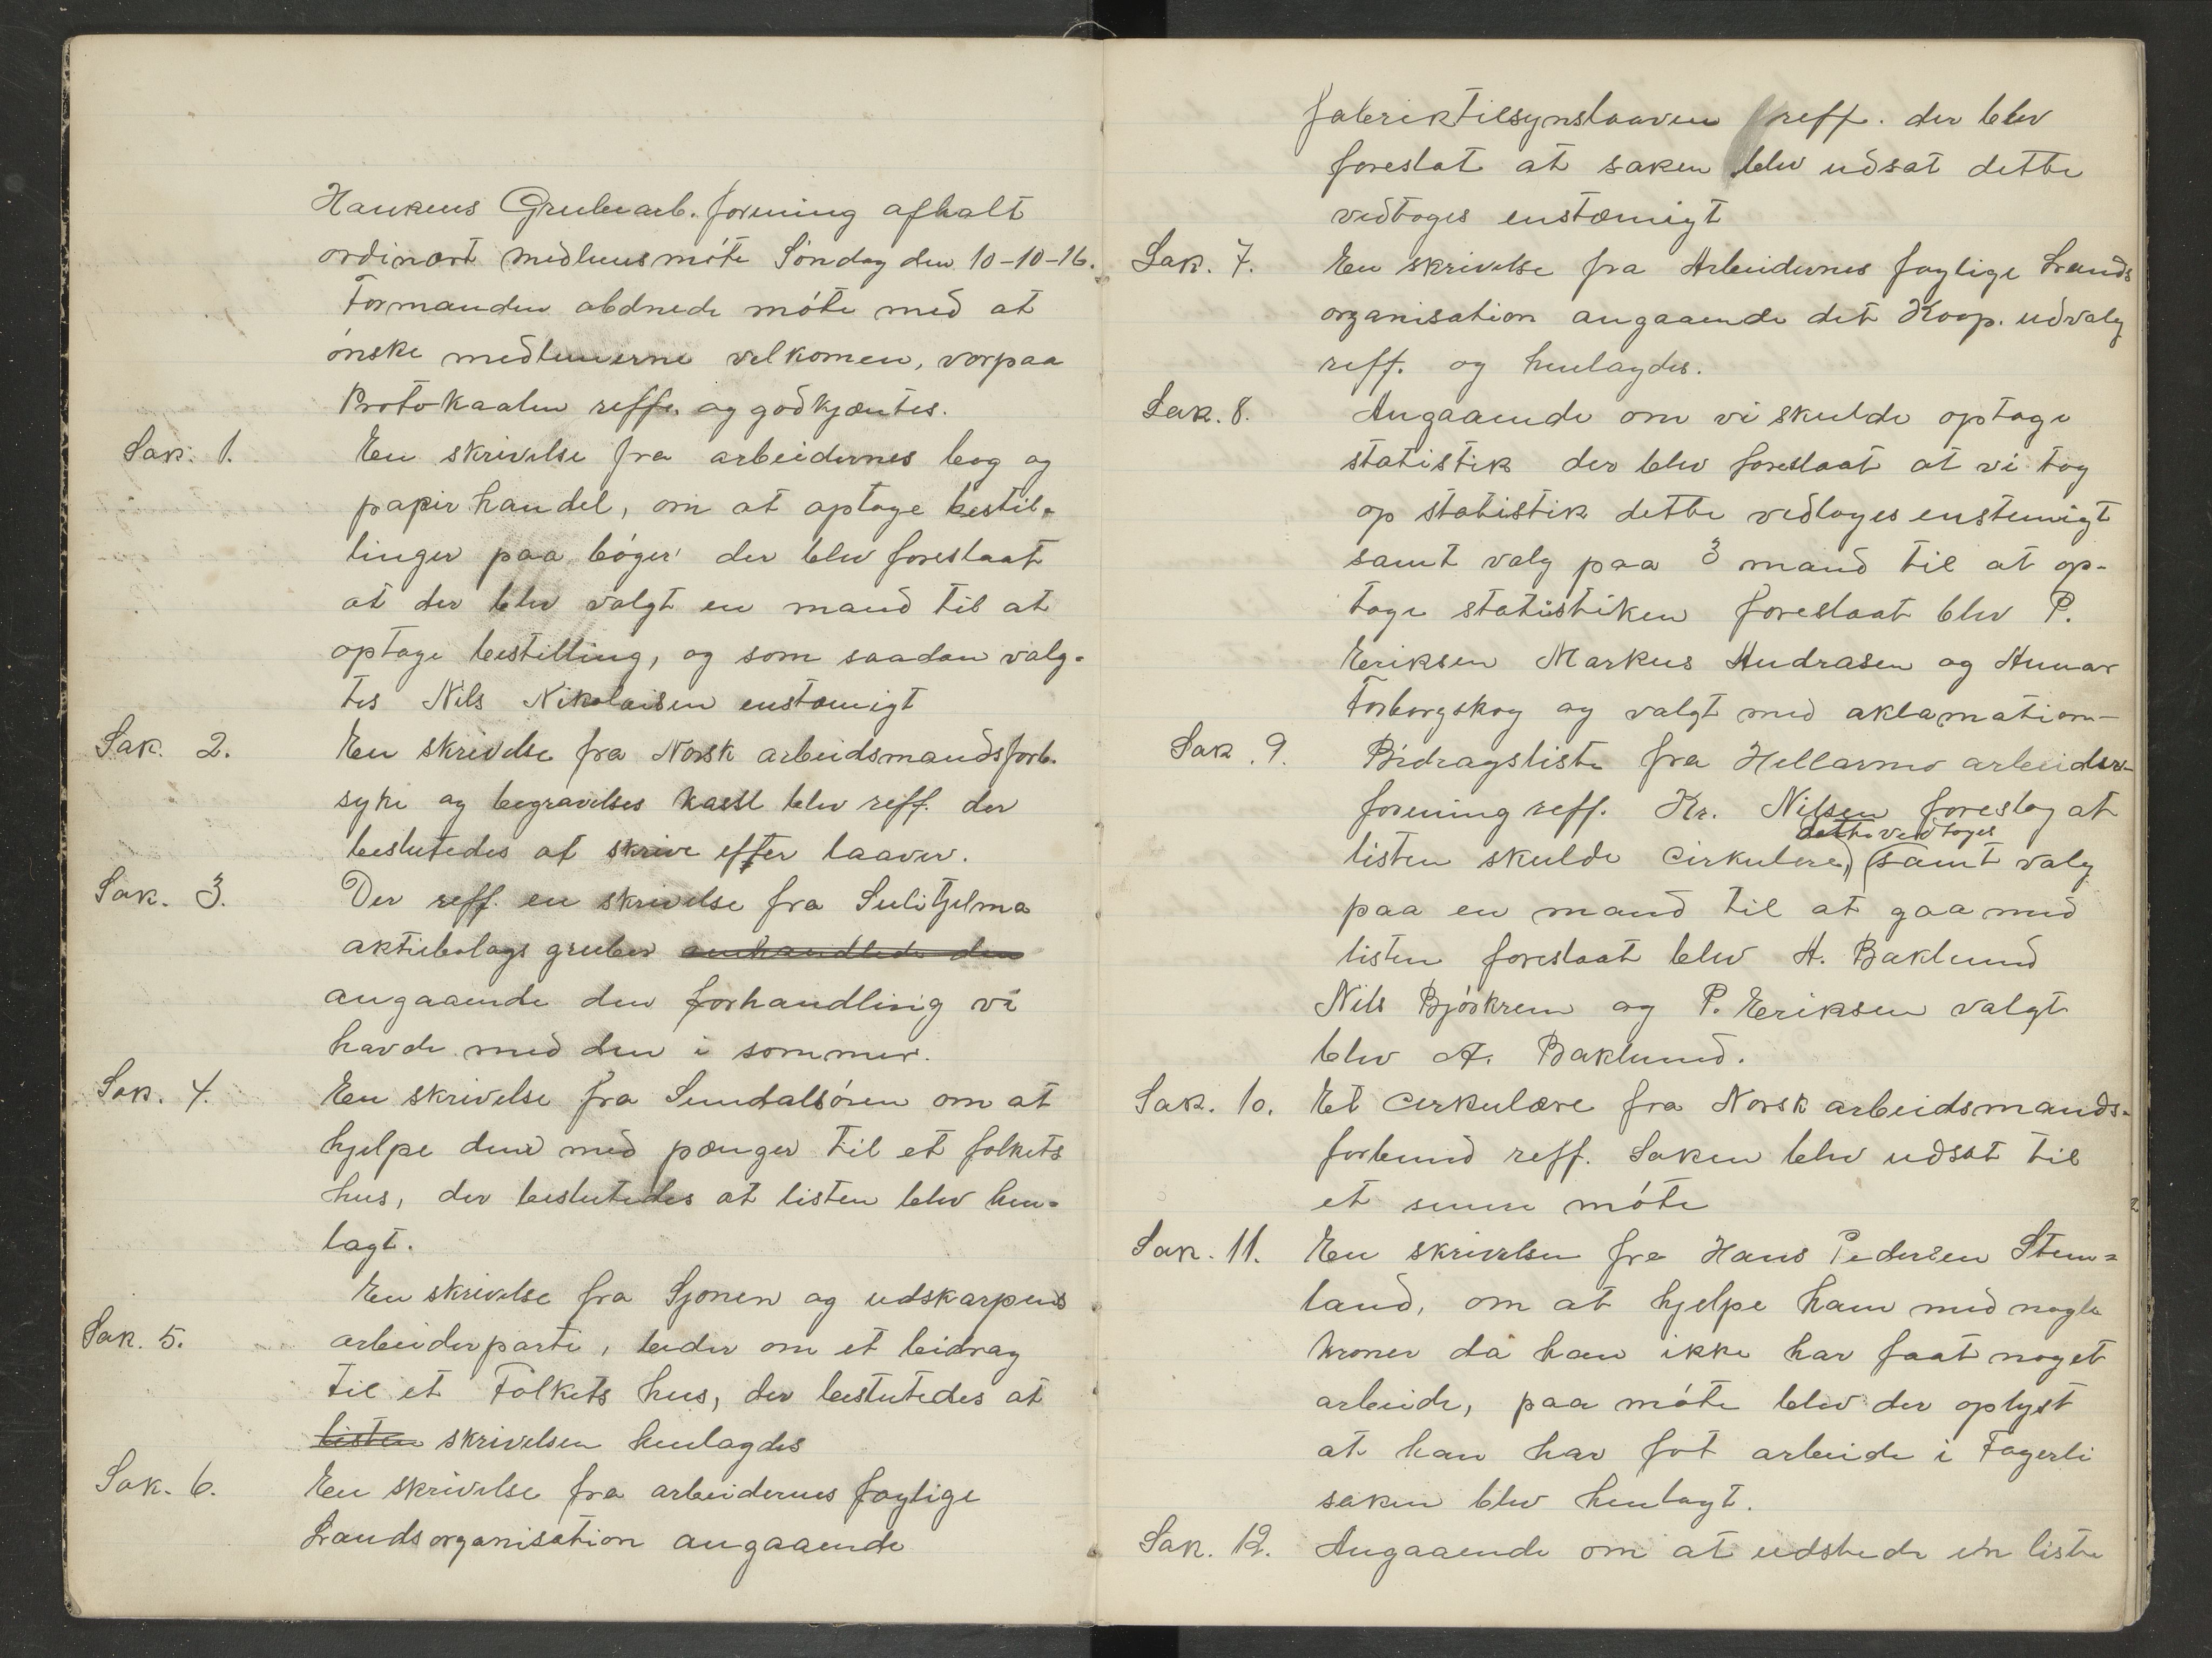 Hankens Grubearb. forening afhalt
ordinært medlemsmøte Søndag den 10-10-16.
Formanden abdnede møte med at
ønske medlemerne velkomen, vorpaa
Protokaalen reff. og godkjæntes.
Sak. 1. En skrivelse fra arbeidernes bog og
papir handel, om at optage bestil-
linger paa bøger der blev foreslaat
at der blev valgt en mand til at
optage bestilling, og som saadan valg-
tes Nils Nikolaisen enstæmigt
Sak. 2. En skrivelse fra Norsk arbeidsmandsforb.
syke og begravelses kasse blev reff. der
beslutedes at skrive efter laaver.
Sak. 3. Der reff. en skrivelse fra Sulitjelma
aktiebolags gruber
angaaende den forhandling vi
havde med den i sommer.
Sak. 4. En skrivelse fra Sundalsøren om at
hjelpe dem med pænger til et folkets
hus, der beslutedes at listen blev hen-
lagt.
En skrivelse fra Sjonen og udskarpens
Sak. 5. arbeiderparti, beder om et beidrag
til et Folkets hus, der beslutedes at
listen skrivelsen henlagdes
Sak. 6. En skrivelse fra arbeidernes faglige
Landsorganisation angaaende
fabriktilsynslaaven reff. der blev
foreslat at saken blev udsat dette
vedtoges enstæmigt
Sak. 7. En skrivelse fra Arbeidernes faglige Lands
organisation angaaende det Koop. udvalg
reff. og henlagdes.
Sak. 8. Angaaende om vi skulde optage
statistik der blev foreslaat at vi tog
op statistik dette vedtoges enstemigt
samt valg paa 3 mand til at op-
tage statistiken foreslaat blev P.
Eriksen Markus Andrasen og
Torborgskog og valgt med aklamation-
Sak. 9. Bidragsliste fra Hellarmo arbeider-
forening reff. Kr. Nilsen foreslog at
dette vedtoges
listen skulde cirkulere, (samt valg
paa en mand til at gaa med
listen foreslaat blev A. Baklund
Nils Bjørkrem og P. Eriksen valgt
blev A. Baklund.
Sak. 10. Et cerkulære fra Norsk arbeidsmands-
forbund reff. Saken blev udsat til
et senere møte
Sak. 11. En skrivelsen fra Hans Pedersen Stem-
land, om at hjelpe ham med nogle
kroner da han ikke har faat noget
arbeide, paa møte blev der oplyst
at han har fot arbeide i Fagerli
saken blev henlagt.
Sak. 12. Angaaende om at udstede en liste